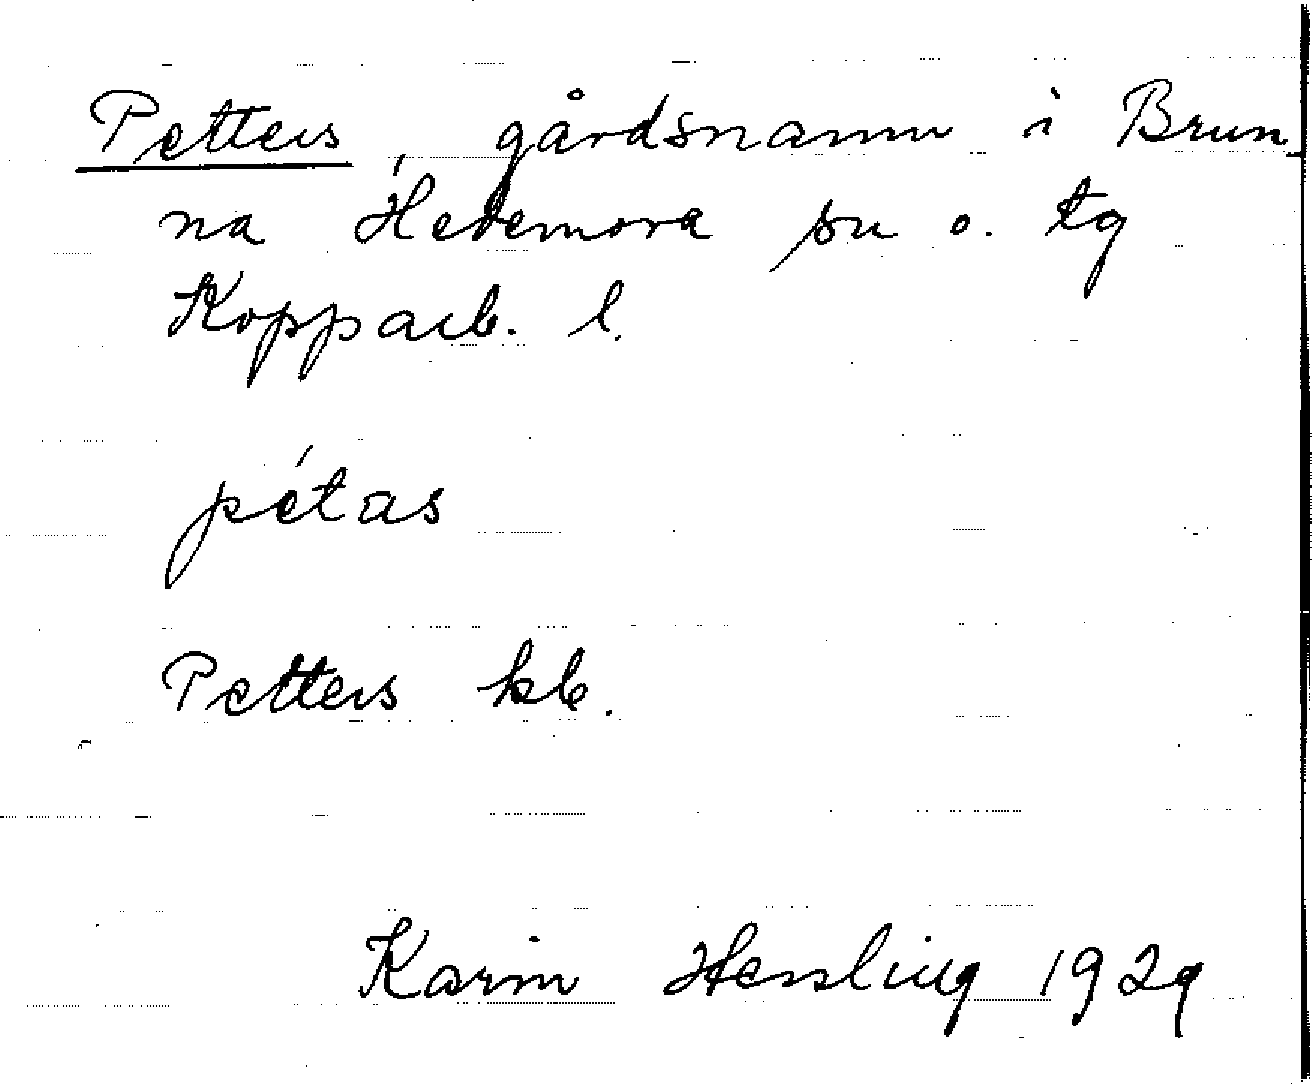 Petters, gårdsnamn i Brun-
na Hedemora sn o. tg
Kopparb. l.
pétas
Petters kb.
Karin Hessling 1929